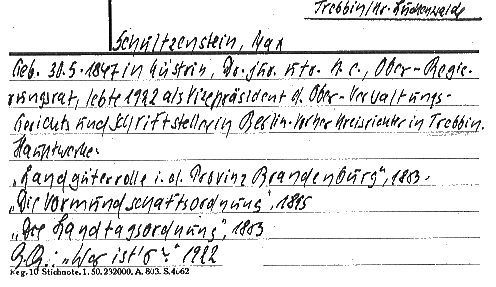 Trebbin/Kr. Luckenwalde
Schultzenstein, Max
Geb. 30.5.1847 in Cüstrin, Dr. jur. utr. h.c., Ober-Regie-
rungsrat, lebte 1922 als Vizepräsident d. Ober-Verwaltungs-
Gerichts und Schriftsteller in Berlin. Vorher Kreisrichter in Trebbin.
Hauptwerke:
„Landgüterrolle i. d. Provinz Brandenburg", 1883.
„Die Vormundschaftsordnung", 1895
„Die Landtagsordnung", 1883
„Wer ist's?" 1922
Reg. 10 Stichnote. 1. 50. 232000. A. 803. S. 4662